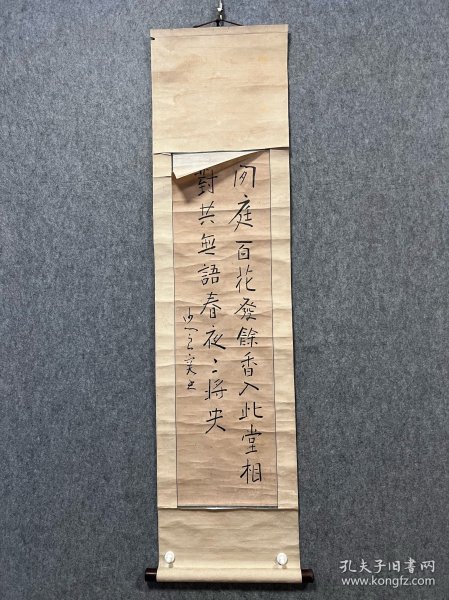 閑庭百花發餘香入此堂相
對共無語春夜々将央
孔夫子旧书网
www.kongfz.com